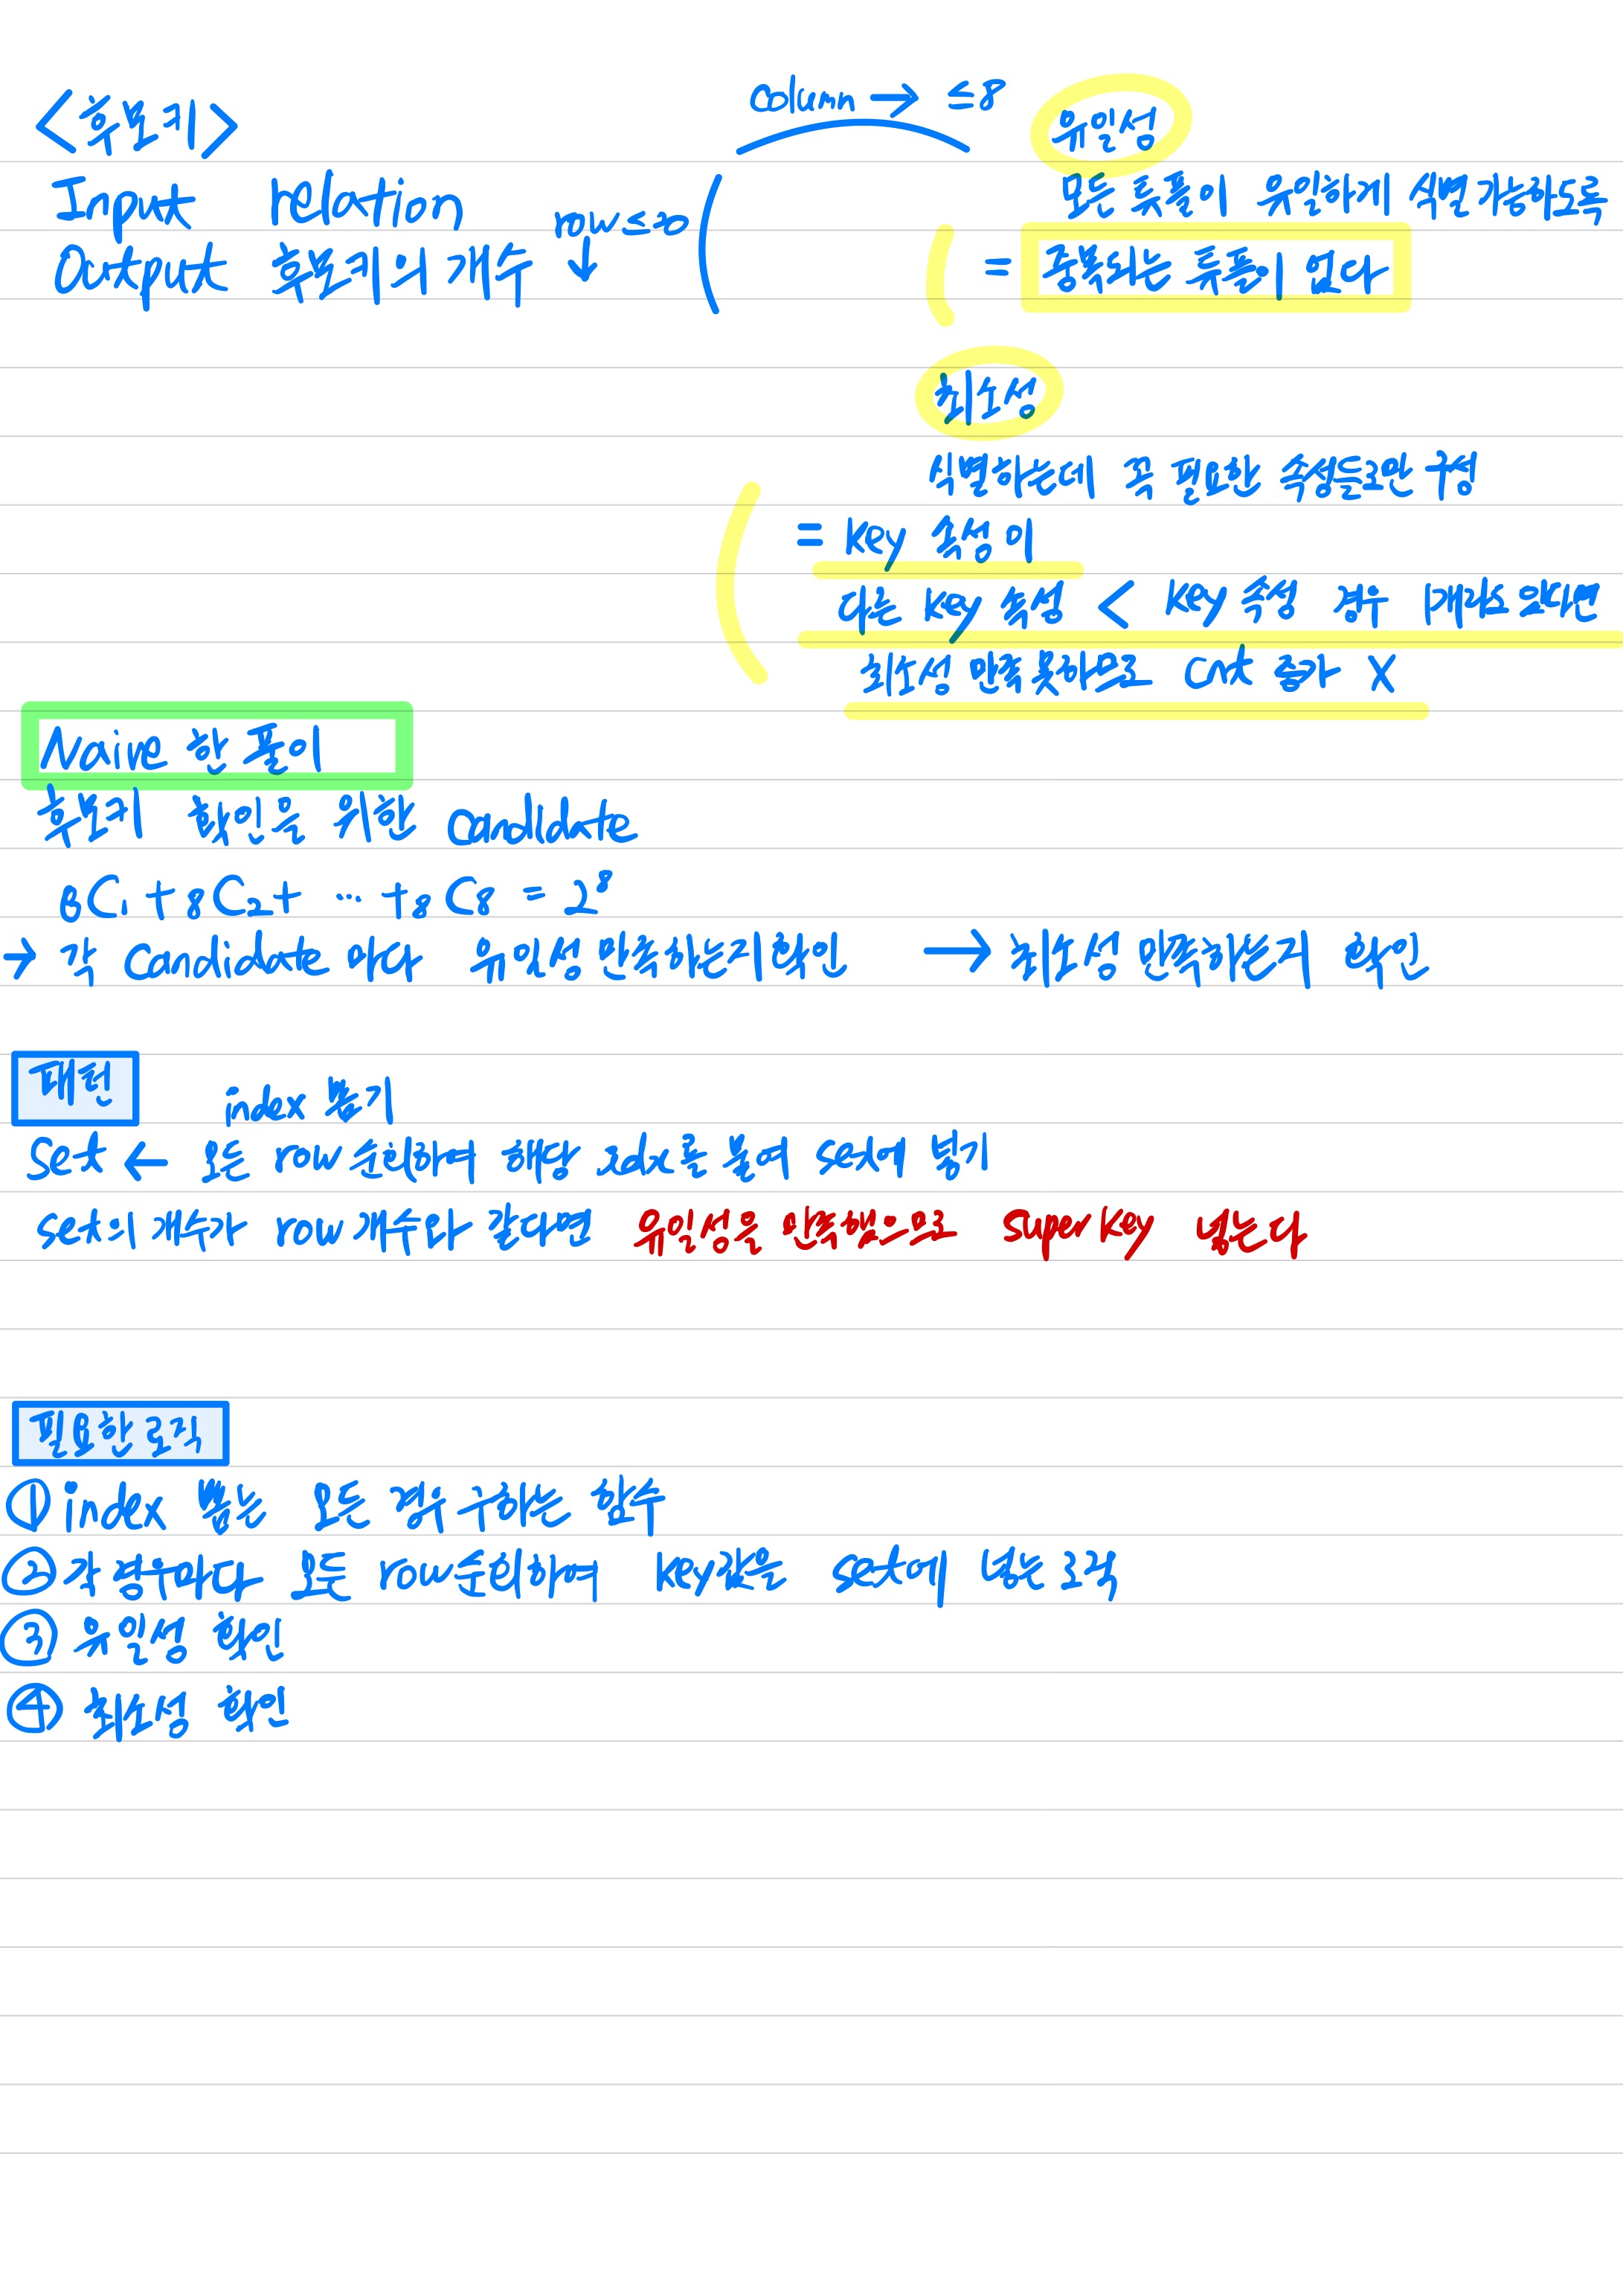 <후보키>
Input relation
Output 후보키의 개수
row ≤ 20
↓
column → ≤8
유일성
모든 튜플이 유일하게 식별 가능하도록
= 중복되는 튜플이 없다
최소성
식별하는데 꼭 필요한 속성들로만 구성
= key 속성이
다른 key 속성 < key 속성 경우 1개라도 있다면
최소성 만족 못하므로 cnt 증가 X
Naive 한 풀이
후보키 확인을 위한 candidate
8C1 + 8C2 + … + 8C8 = 2^8
→ 각 candidate 마다 유일성 만족하는지 확인 → 최소성 만족하는지 확인
패턴
index 뽑기
Set ← 모든 row 순회하며 해당 idx를 붙여 set에 넣기
set의 개수가 row 개수와 같다면 유일성을 만족했으므로 super key 넣는다
필요한 로직
① index 뽑는 모든 경우 구하는 함수
② 각 경우마다 모든 row 순회하며 key값을 set에 넣는 로직
③ 유일성 확인
④ 최소성 확인